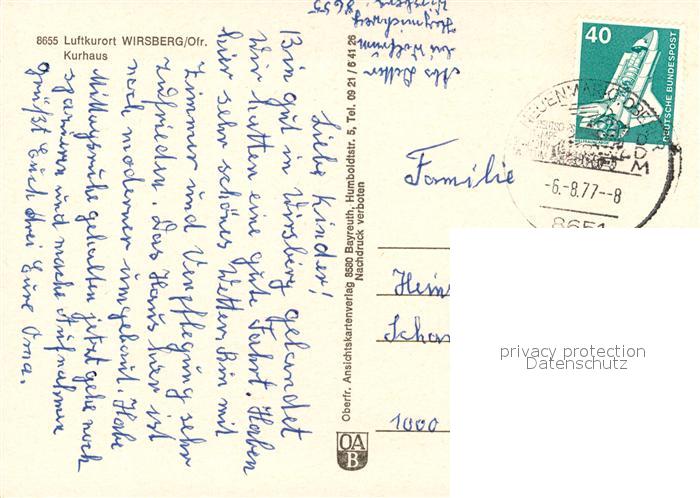 8655 Luftkurort WIRSBERG/Ofr.
Kurhaus
Liebe Kinder!
Bin gut in Wirsberg gelandet
wir hatten eine gute Fahrt. Haben
hier sehr schönes Wetter. Bin mit
Zimmer und Verpflegung sehr
zufrieden. Das Haus hier ist
noch moderner umgebaut. Habe
Mittagsruhe gehalten jetzt gehe noch
spazieren und mache Aufnahmen
Grüßt Euch drei Eure Oma.
Oberfr. Ansichtskartenverlag 8580 Bayreuth, Humboldtstr. 5, Tel. 09 21 / 6 41 26
Nachdruck verboten
OA
B
Abs
bei
8655
40
DEUTSCHE BUNDESPOST
NEUENMARKT, OBERFR
DDM
-6.-8.77--8
8651
Familie
Hein
Scha
1000
privacy protection
Datenschutz